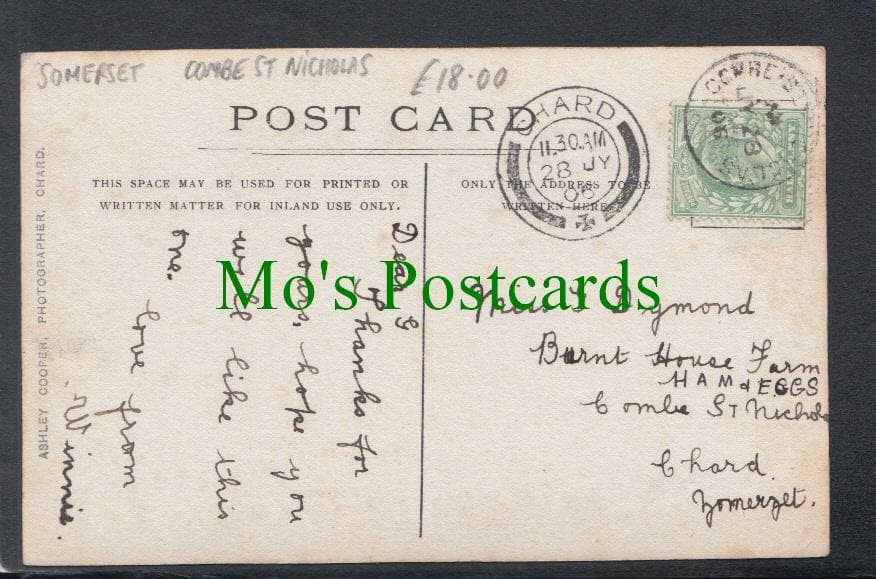 SOMERSET COMBE ST NICHOLAS £18.00
POST CARD
THIS SPACE MAY BE USED FOR PRINTED OR
WRITTEN MATTER FOR INLAND USE ONLY.
ONLY THE ADDRESS TO BE
WRITTEN HERE.
CHARD
11.30AM
28 JY
06
ASHLEY COOPER, PHOTOGRAPHER, CHARD.
Dear G
Thanks for
yours, hope you
will like this
one.
love from
Winnie.
Mo's Postcards
Miss G Dymond
Burnt House Farm
HAM & EGGS
Combe St Nicholas
Chard.
Zomerzet.